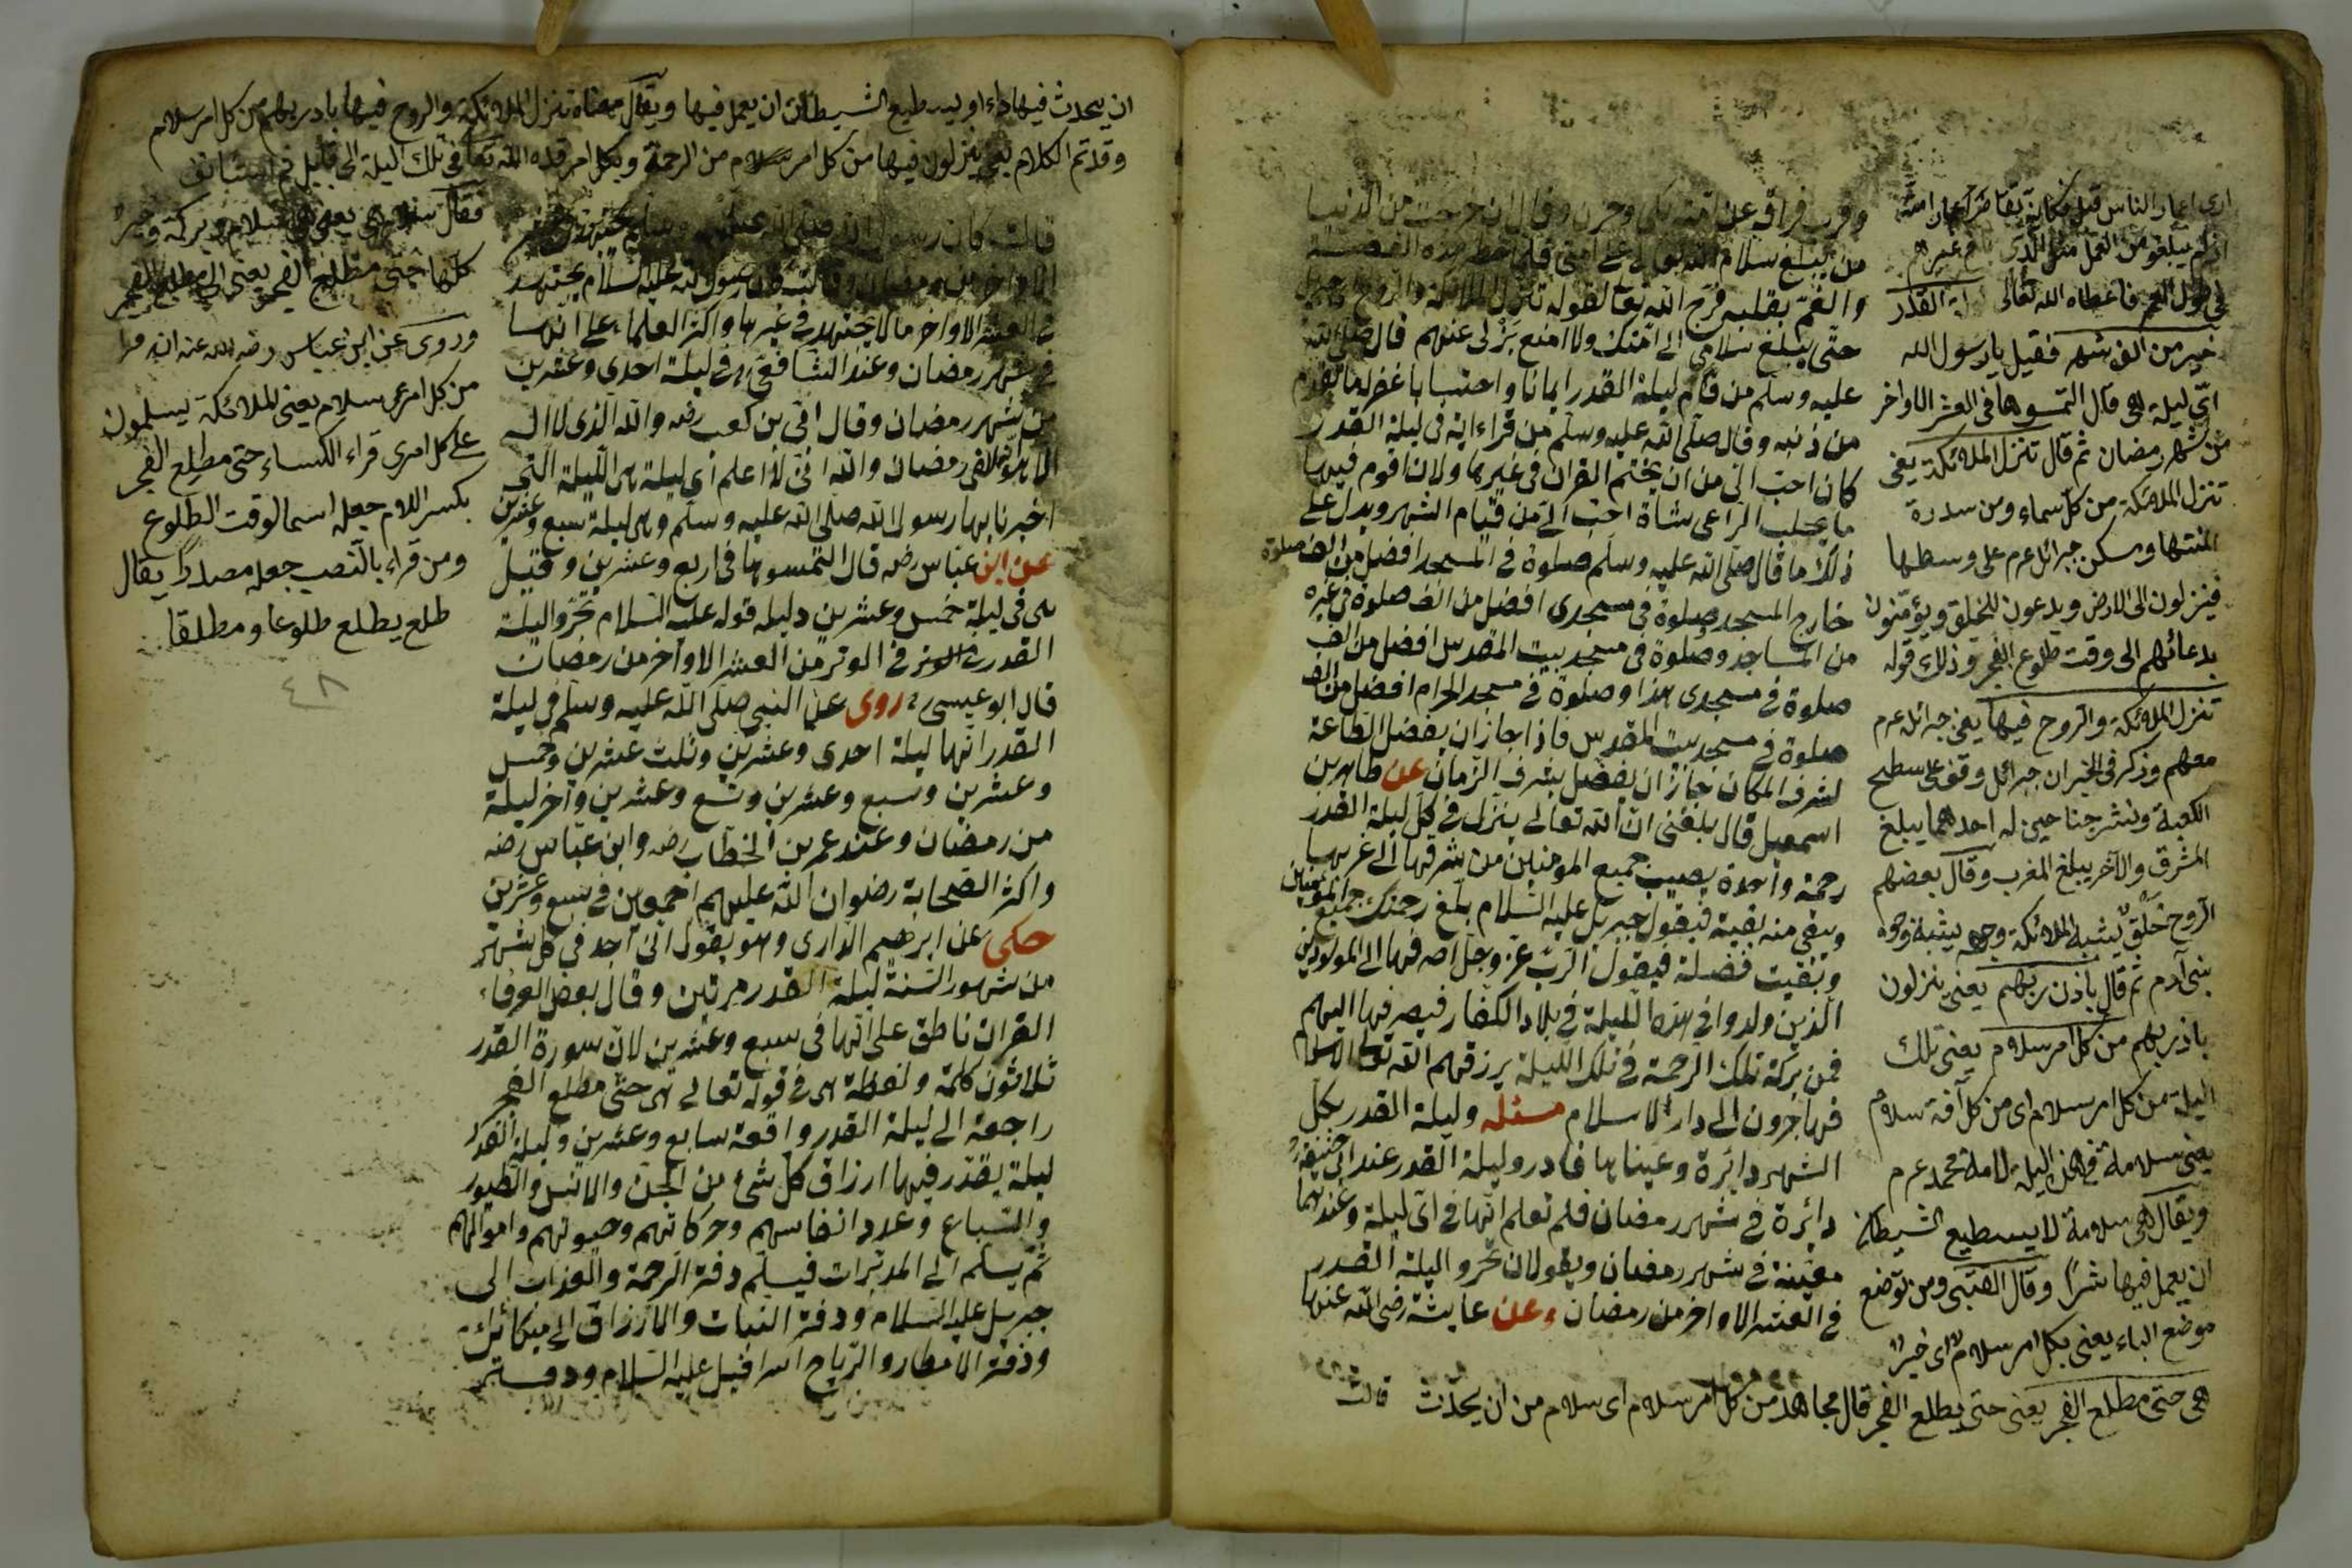 وقرب فراقى عن امته بكى وحزن وقال ان خرجت من الدنيا
من يبلغ سلام الله تعالى على امتى
والغم بقلبه فرح الله تعا لقوله تنزل الملائكة والروح
حتى يبلغ سلامى الى امتك ولا امنع بركى عنهم قال صلى الله
عليه وسلم من قام ليلة القدر ايمانا واحتسابا غفر له ما تقدم
من ذنبه وقال صلى الله عليه وسلم من قراء اية فى ليلة القدر
كان احب الى من ان يختم القران فى غيرها ولان اقوم فيها
ما يحلب الراعى شاة احب الى من قيام الشهر ويدل على
ذلك ما قال صلى الله عليه وسلم صلوة فى المسجد افضل من الف صلوة
خارج المسجد وصلوة فى مسجدى افضل من الف صلوة فى غيره
من المساجد وصلوة فى مسجد بيت المقدس افضل من الف
صلوة فى مسجدى هذا وصلوة فى مسجد الحرام افضل من الف
صلوة فى مسجد بيت المقدس فاذا جاز ان يفضل الطاعة
لشرف المكان جاز ان يفضل بشرف الزمان عن طاهر بن
اسمعيل قال بلغنى ان الله تعالى ينزل فى كل ليلة القدر
رحمة واحدة يصيب جميع المومنين من شرقها الى غربها
وتبقى منه بقية فيقول جبريل عليه السلام بلغ رحمتك جميع المومنين
وبقيت فضلة فيقول الرب عز وجل اصرفها الى المولودين
الذين ولدوا فى هذه الليلة فى بلاد الكفار فيصرفها اليهم
فمن بركة تلك الرحمة فى تلك الليلة يرزقهم الله تعالى الاسلام
فهاجرون الى دار الاسلام مسئله وليلة القدر بكل
الشهر دائرة وعيناها فادر وليلة القدر عند ابى حنيفة
دائرة فى شهر رمضان فلم تعلم انها فى اى ليلة وعندهما
معينة فى شهر رمضان ويقولان تحروا ليلة القدر
فى العشر الاواخر من رمضان وعن عايشة رضى الله عنها
قالت
ارى اعمار الناس قبل فكانه تقاصر اعمار امته
ان لم يبلغو من العمل مثل الذى بلغ غيرهم
فى طول العمر فاعطاه الله تعالى ليلة القدر
خير من الف شهر فقيل يا رسول الله
اى ليلة هى قال التمسوها فى العشر الاواخر
من شهر رمضان ثم قال تنزل الملائكة يعنى
تنزل الملائكة من كل سماء ومن سدرة
المنتها ومسكن جبرائل عم على وسطها
فينزلون الى الارض ويدعون للخلق ويؤمنون
بدعائهم الى وقت طلوع الفجر وذلك قوله
تنزل الملائكة والروح فيها يعنى جبرائل عم
معهم وذكر فى الخبر ان جبرائل وقف على سطح
الكعبة ونشر جناحين له احدهما يبلغ
المشرق والآخر يبلغ المغرب وقال بعضهم
الروح خلق يشبه الملائكة وجهه يشبه وجوه
بنى آدم ثم قال باذن ربهم يعنى ينزلون
باذن ربهم من كل امر سلام يعنى تلك
الليلة من كل امر سلام اى من كل آفة سلام
يعنى سلامة فى هذه الليلة لامة محمد عم
ويقال هى سلامة لا يستطيع الشيطان
ان يعمل فيها شرا وقال القتبى ومن توضع
موضع الباء يعنى بكل امر سلام اى خير
هى حتى مطلع الفجر يعنى حتى يطلع الفجر قال مجاهد من كل امر سلام اى سلام من ان يحدث
ان يحدث فيها داء او يستطيع الشيطان ان يعمل فيها ويقال معناه تنزل الملائكة والروح فيها باذن ربهم من كل امر سلام
وقد تم الكلام يعنى ينزلون فيها من كل امر سلام من الرحمة وبكل امر قدره الله تعا فى تلك الليلة الى قابل ثم استانف
فقال سلام هى يعنى هى سلام وبركة وخير
كلها حتى مطلع الفجر يعنى الى مطلع الفجر
وروى عن ابن عباس رضى الله عنه انه قرا
من كل امرء سلام يعنى الملائكة يسلمون
على كل امرى قراء الكساء حتى مطلع الفجر
بكسر اللام جعله اسما لوقت الطلوع
ومن قراء بالنصب جعله مصدرا يقال
طلع يطلع طلوعا ومطلقا
٤٨
قالت كان رسول الله صلى الله عليه وسلم يجتهد فى العشر
الاواخر من رمضان وقالت كان رسول الله عليه السلام يجتهد
فى العشر الاواخر ما لا يجتهد فى غيرها واكثر العلماء على انها
فى شهر رمضان وعند الشافعى فى ليلة احدى وعشرين
من شهر رمضان وقال ابى بن كعب رضه والله الذى لا اله
الا هو انها لفى رمضان والله انى لا اعلم اى ليلة هى الليلة التى
اخبرنا بها رسول الله صلى الله عليه وسلم وهى ليلة سبع وعشرين
عن ابن عباس رضه قال التمسوها فى اربع وعشرين وقيل
هى فى ليلة خمس وعشرين دليله قوله عليه السلام تحروا ليلة
القدر فى الوتر من العشر الاواخر من رمضان
قال ابو عيسى روى عن النبى صلى الله عليه وسلم فى ليلة
القدر انها ليلة احدى وعشرين وثلث عشرين وخمس
وعشرين وسبع وعشرين وتسع وعشرين وآخر ليلة
من رمضان وعند عمر بن الخطاب رضه وابن عباس رضه
واكثر الصحابة رضوان الله عليهم اجمعين فى سبع وعشرين
حكى عن ابرهيم الدارى وهو يقول انى اجد فى كل شهر
من شهور السنة ليلة القدر مرتين وقال بعض العرفاء
القران ناطق على انها فى سبع وعشرين لان سورة القدر
ثلاثون كلمة ولفظة هى فى قوله تعالى هى حتى مطلع الفجر
راجعة الى ليلة القدر واقعة سابع وعشرين وليلة القدر
ليلة يقدر فيها ارزاق كل شئ من الجن والانس والطيور
والسباع وعدد انفاسهم وحركاتهم وحيوتهم واموالهم
ثم يسلم الى المدبرات فيسلم دفتر الرحمة والعذاب الى
جبريل عليه السلام ودفتر النبات والارزاق الى ميكائل
ودفتر الامطار والرياح اسرافيل عليه السلام ودفتر